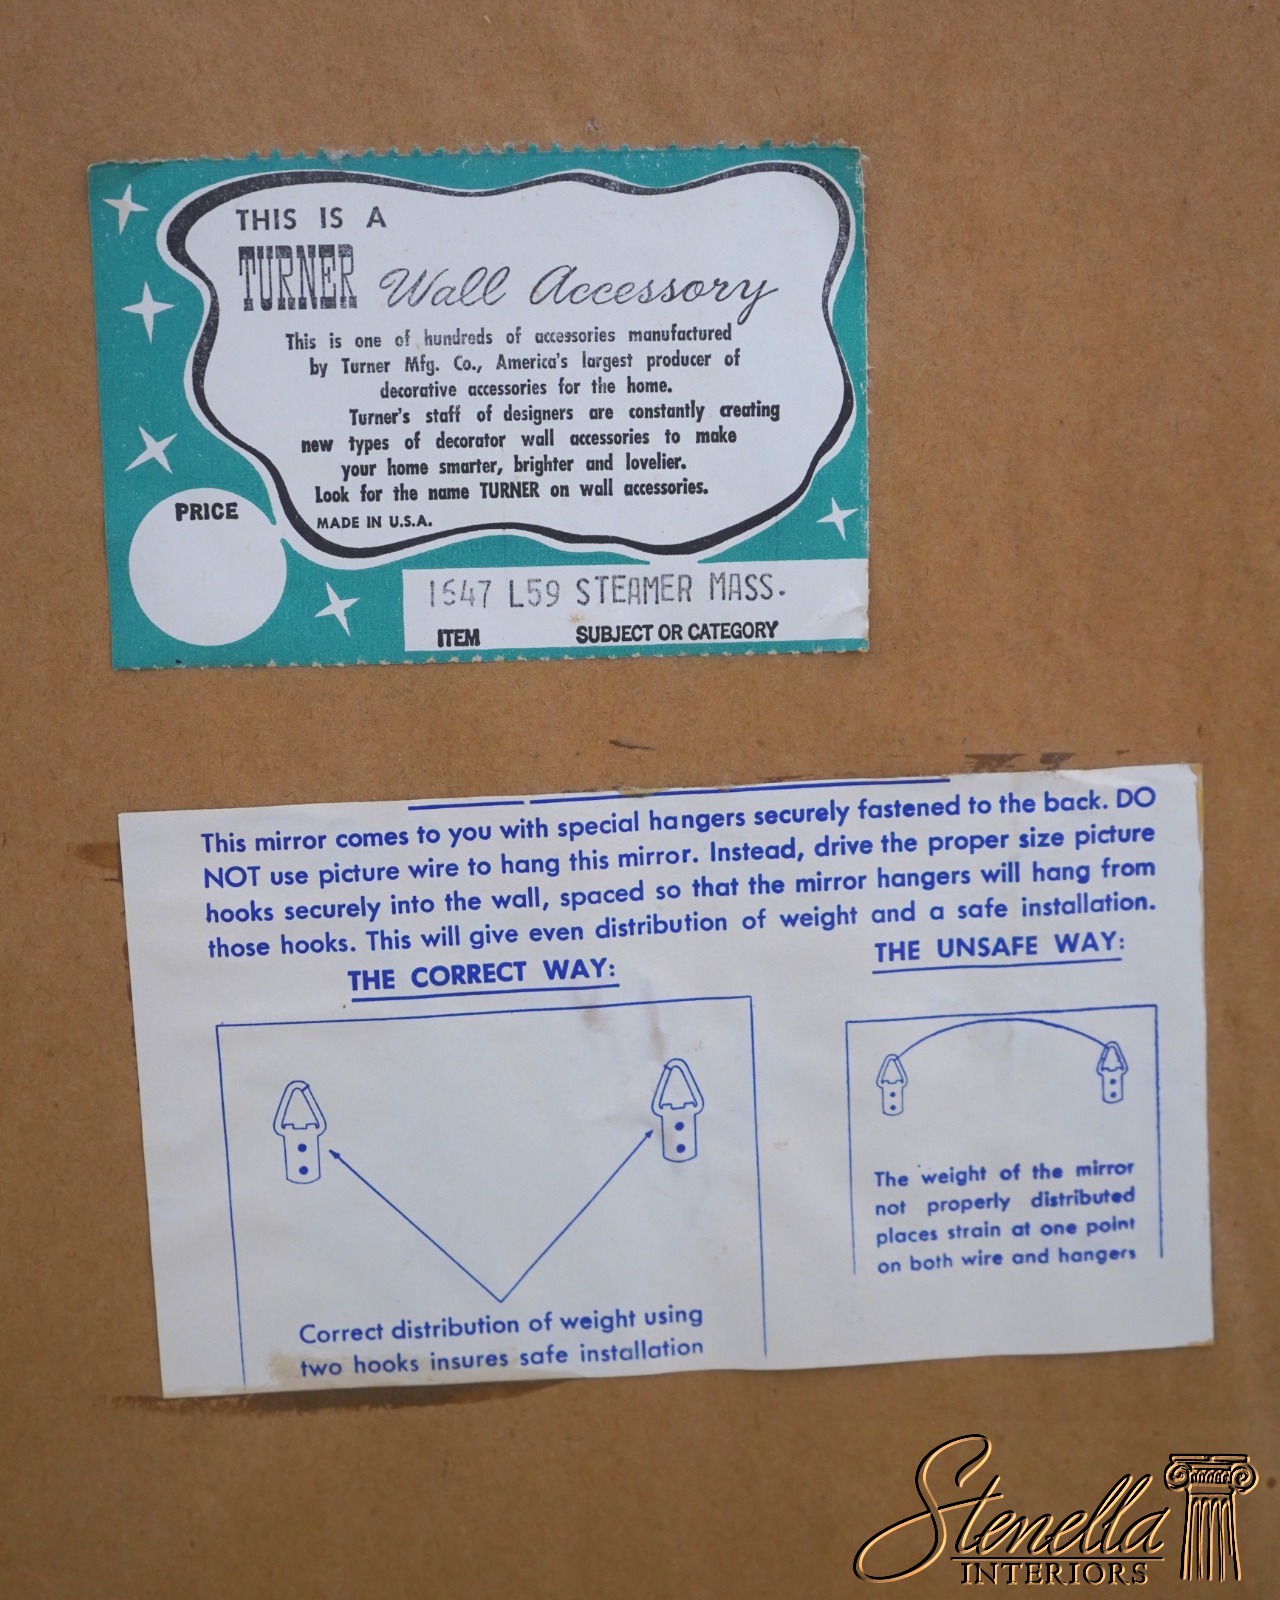 THIS IS A
TURNER Wall Accessory
This is one of hundreds of accessories manufactured
by Turner Mfg. Co., America's largest producer of
decorative accessories for the home.
Turner's staff of designers are constantly creating
new types of decorator wall accessories to make
your home smarter, brighter and lovelier.
Look for the name TURNER on wall accessories.
MADE IN U.S.A.
PRICE
1647 L59 STEAMER MASS.
ITEM SUBJECT OR CATEGORY
This mirror comes to you with special hangers securely fastened to the back. DO
NOT use picture wire to hang this mirror. Instead, drive the proper size picture
hooks securely into the wall, spaced so that the mirror hangers will hang from
those hooks. This will give even distribution of weight and a safe installation.
THE CORRECT WAY:
Correct distribution of weight using
two hooks insures safe installation
THE UNSAFE WAY:
The weight of the mirror
not properly distributed
places strain at one point
on both wire and hangers
Stenella
INTERIORS